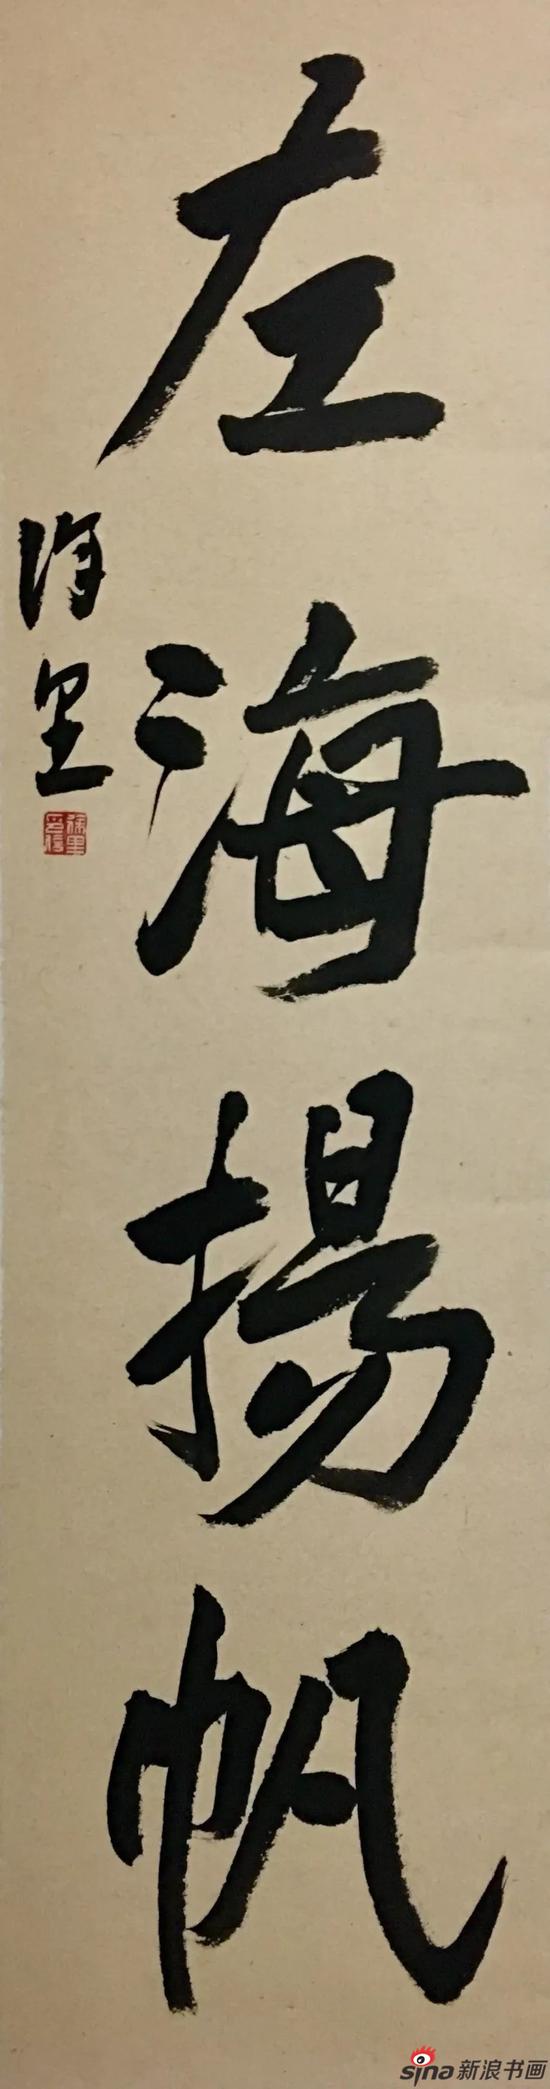 左海揚帆
徐里
sina新浪书画